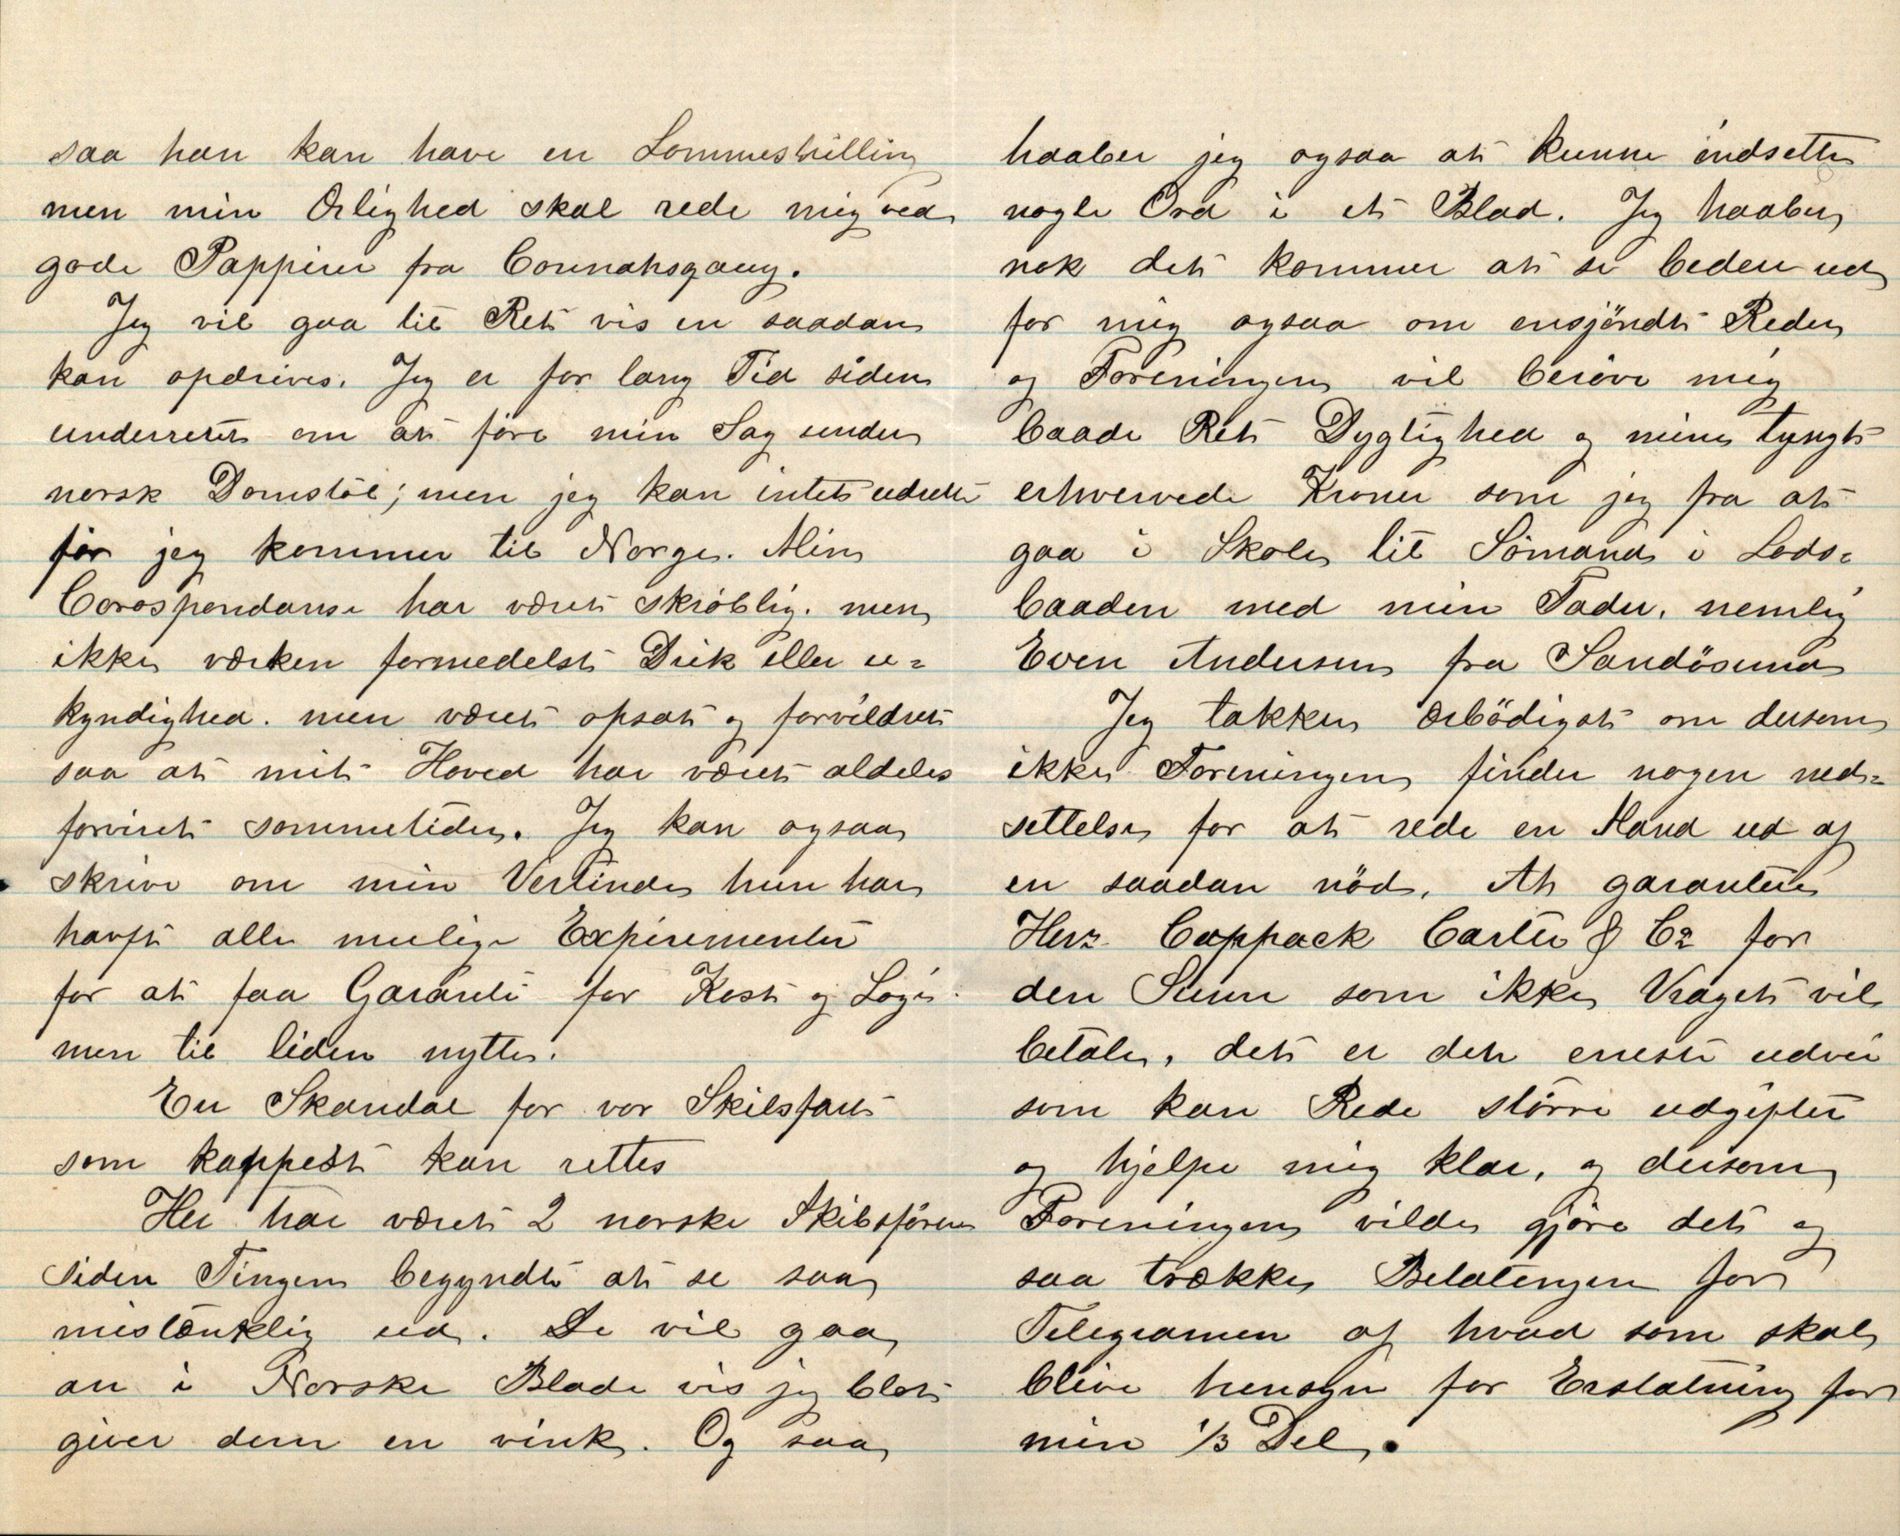 saa han kan have en Lommeskilling
men min Ærlighed skal rede mig ved
gode Pappirer fra Connahsquay.
Jeg vil gaa til Ret vis en saadan
kan opdrives. Jeg er for lang Tid siden
underrettet om at føre min Sag under
norsk Domstol; men jeg kan intet udrette
før jeg kommer til Norge. Min
Corospondanse har været skrøblig. men
ikke værken formedelst Drik eller u=
kyndighed. men været opsat og forvildret
saa at mit Hoved har været aldeles
forviret sommetider. Jeg kan ogsaa
skrive om min Vertinde hun har
havft alle mulige Expirementer
for at faa Garanti for Kost og Logis.
men til liden nytte.
En Skandal for vor Skibsfart
som kappest kan rettes
Her har været 2 norske Skibsförere
siden Tingen begyndte at se saa
mistænklig ud. De vil gaa
an i Norske Blade vis jeg blot
giver dem en vink. Og saa
haaber jeg ogsaa at kunne indsette
nogle Ord i et Blad. Jeg haaber
nok det kommer at se beder ud
for mig ogsaa om ensjöndt Reder
og Foreningen vil beröve mig
baade Ret Dygtighed og mine tyngt
erhvervede Kroner som jeg fra at
gaa i Skole til Sömand i Lods=
baaden med min Fader. nemlig
Even Andersen fra Sandösund
Jeg takker ærbödigst om dersom
ikke Foreningen finder nogen ned=
settelse for at rede en Mand ud af
en saadan nöd. At garantere
Herr Coppack Carter & Co for
den Sum som ikke Vraget vil
betale, det er den eneste udvei
som kan Rede större udgifter
og hjelpe mig klar, og dersom
Foreningen vilde gjöre det og
saa trække Belatingen for
Telegramen af hvad som skal
blive hensyn for Erstatning for
min 1/3 Del.